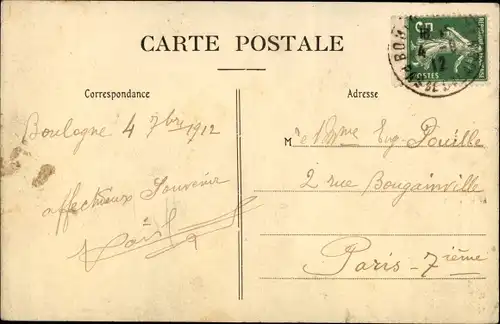 CARTE POSTALE
Correspondance
Adresse
Boulogne 4 7bre 1912
affectueux Souvenir
M e Mme Eug. Pouille
2 rue Bougainville
Paris - 7ième
5
POSTES
BOU
4 - 9
12
PAS DE